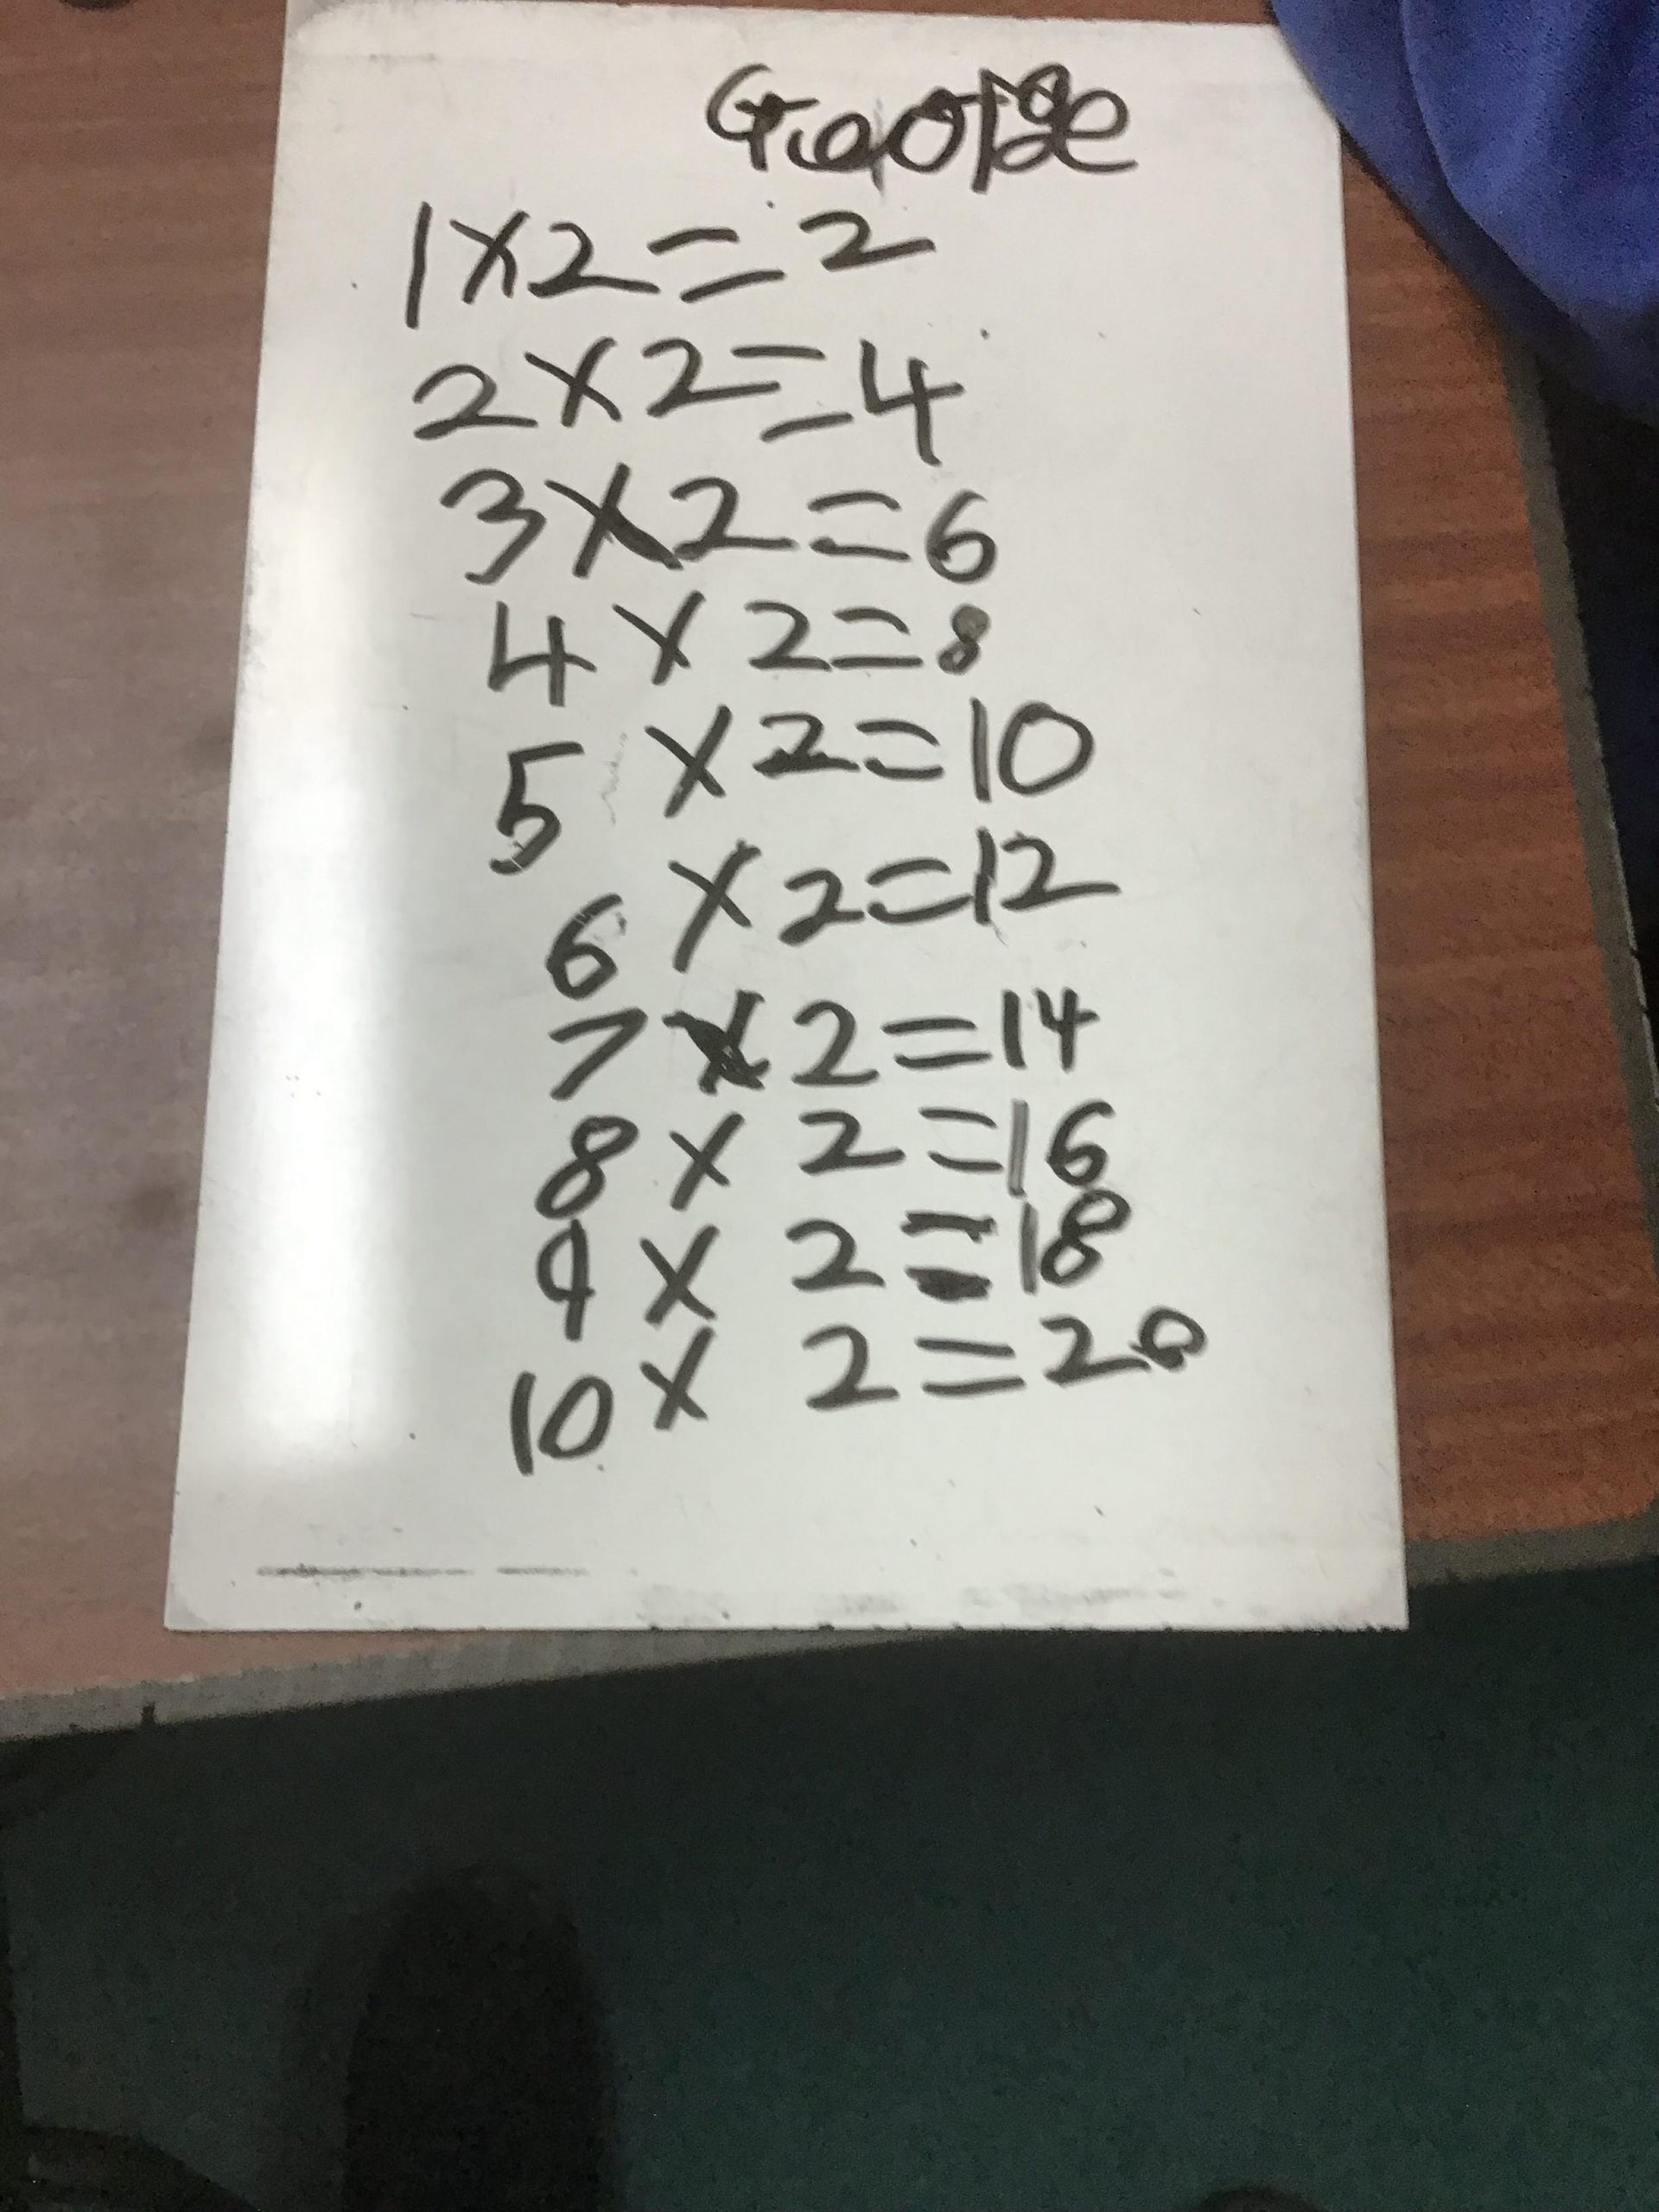 George
1x2=2
2x2=4
3x2=6
4x2=8
5x2=10
6x2=12
7x2=14
8x2=16
9x2=18
10x2=20